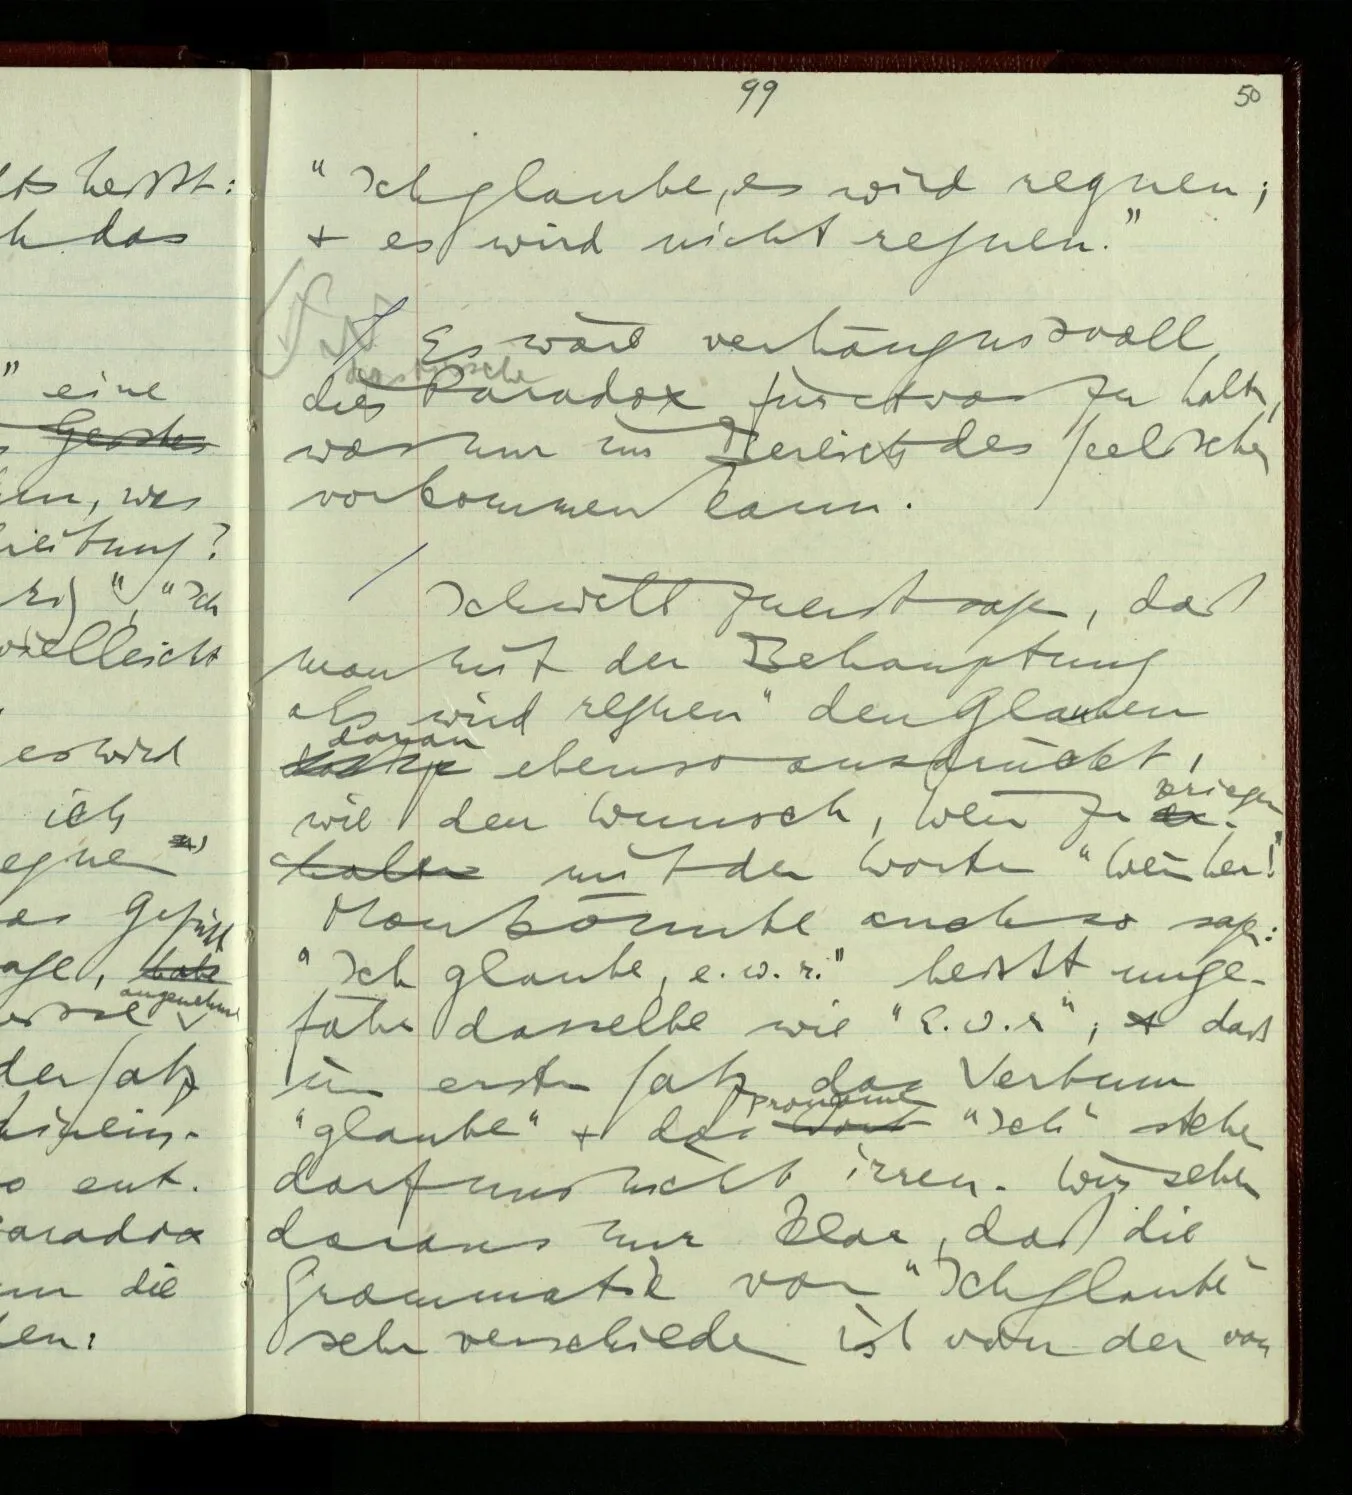 99
50
lts heisst:
das
" eine
Geistes
was
tung?
" , "Ich
vielleicht
es wird
ich
egne"
Gefühl
age, habe
angenehme
der Satz
hinein-
ent.
Paradox
die
"Ich glaube, es wird regnen;
+ es wird nicht regnen."
Es wäre verhängnisvoll,
dies Mooresche Paradox für etwas zu halten,
was nur im Bereich des Seelischen
vorkommen kann.
/ Ich will zuerst sagen, daß
man mit der Behauptung
"es wird regnen" den Glauben
daran ebenso ausdrückt,
wie den Wunsch, Wein zu kriegen
halten mit den Worten "Wein her!"
Man könnte auch so sagen:
"Ich glaube, e.w.r." heisst unge-
fähr dasselbe wie "e.w.r"; + daß
im ersten Satz das Verbum
"glaube" + das Wort Pronomen "Ich" stehen
darf uns nicht irren. Wir sehen
daraus nur klar, daß die
Grammatik von "Ich glaube"
sehr verschieden ist von der von